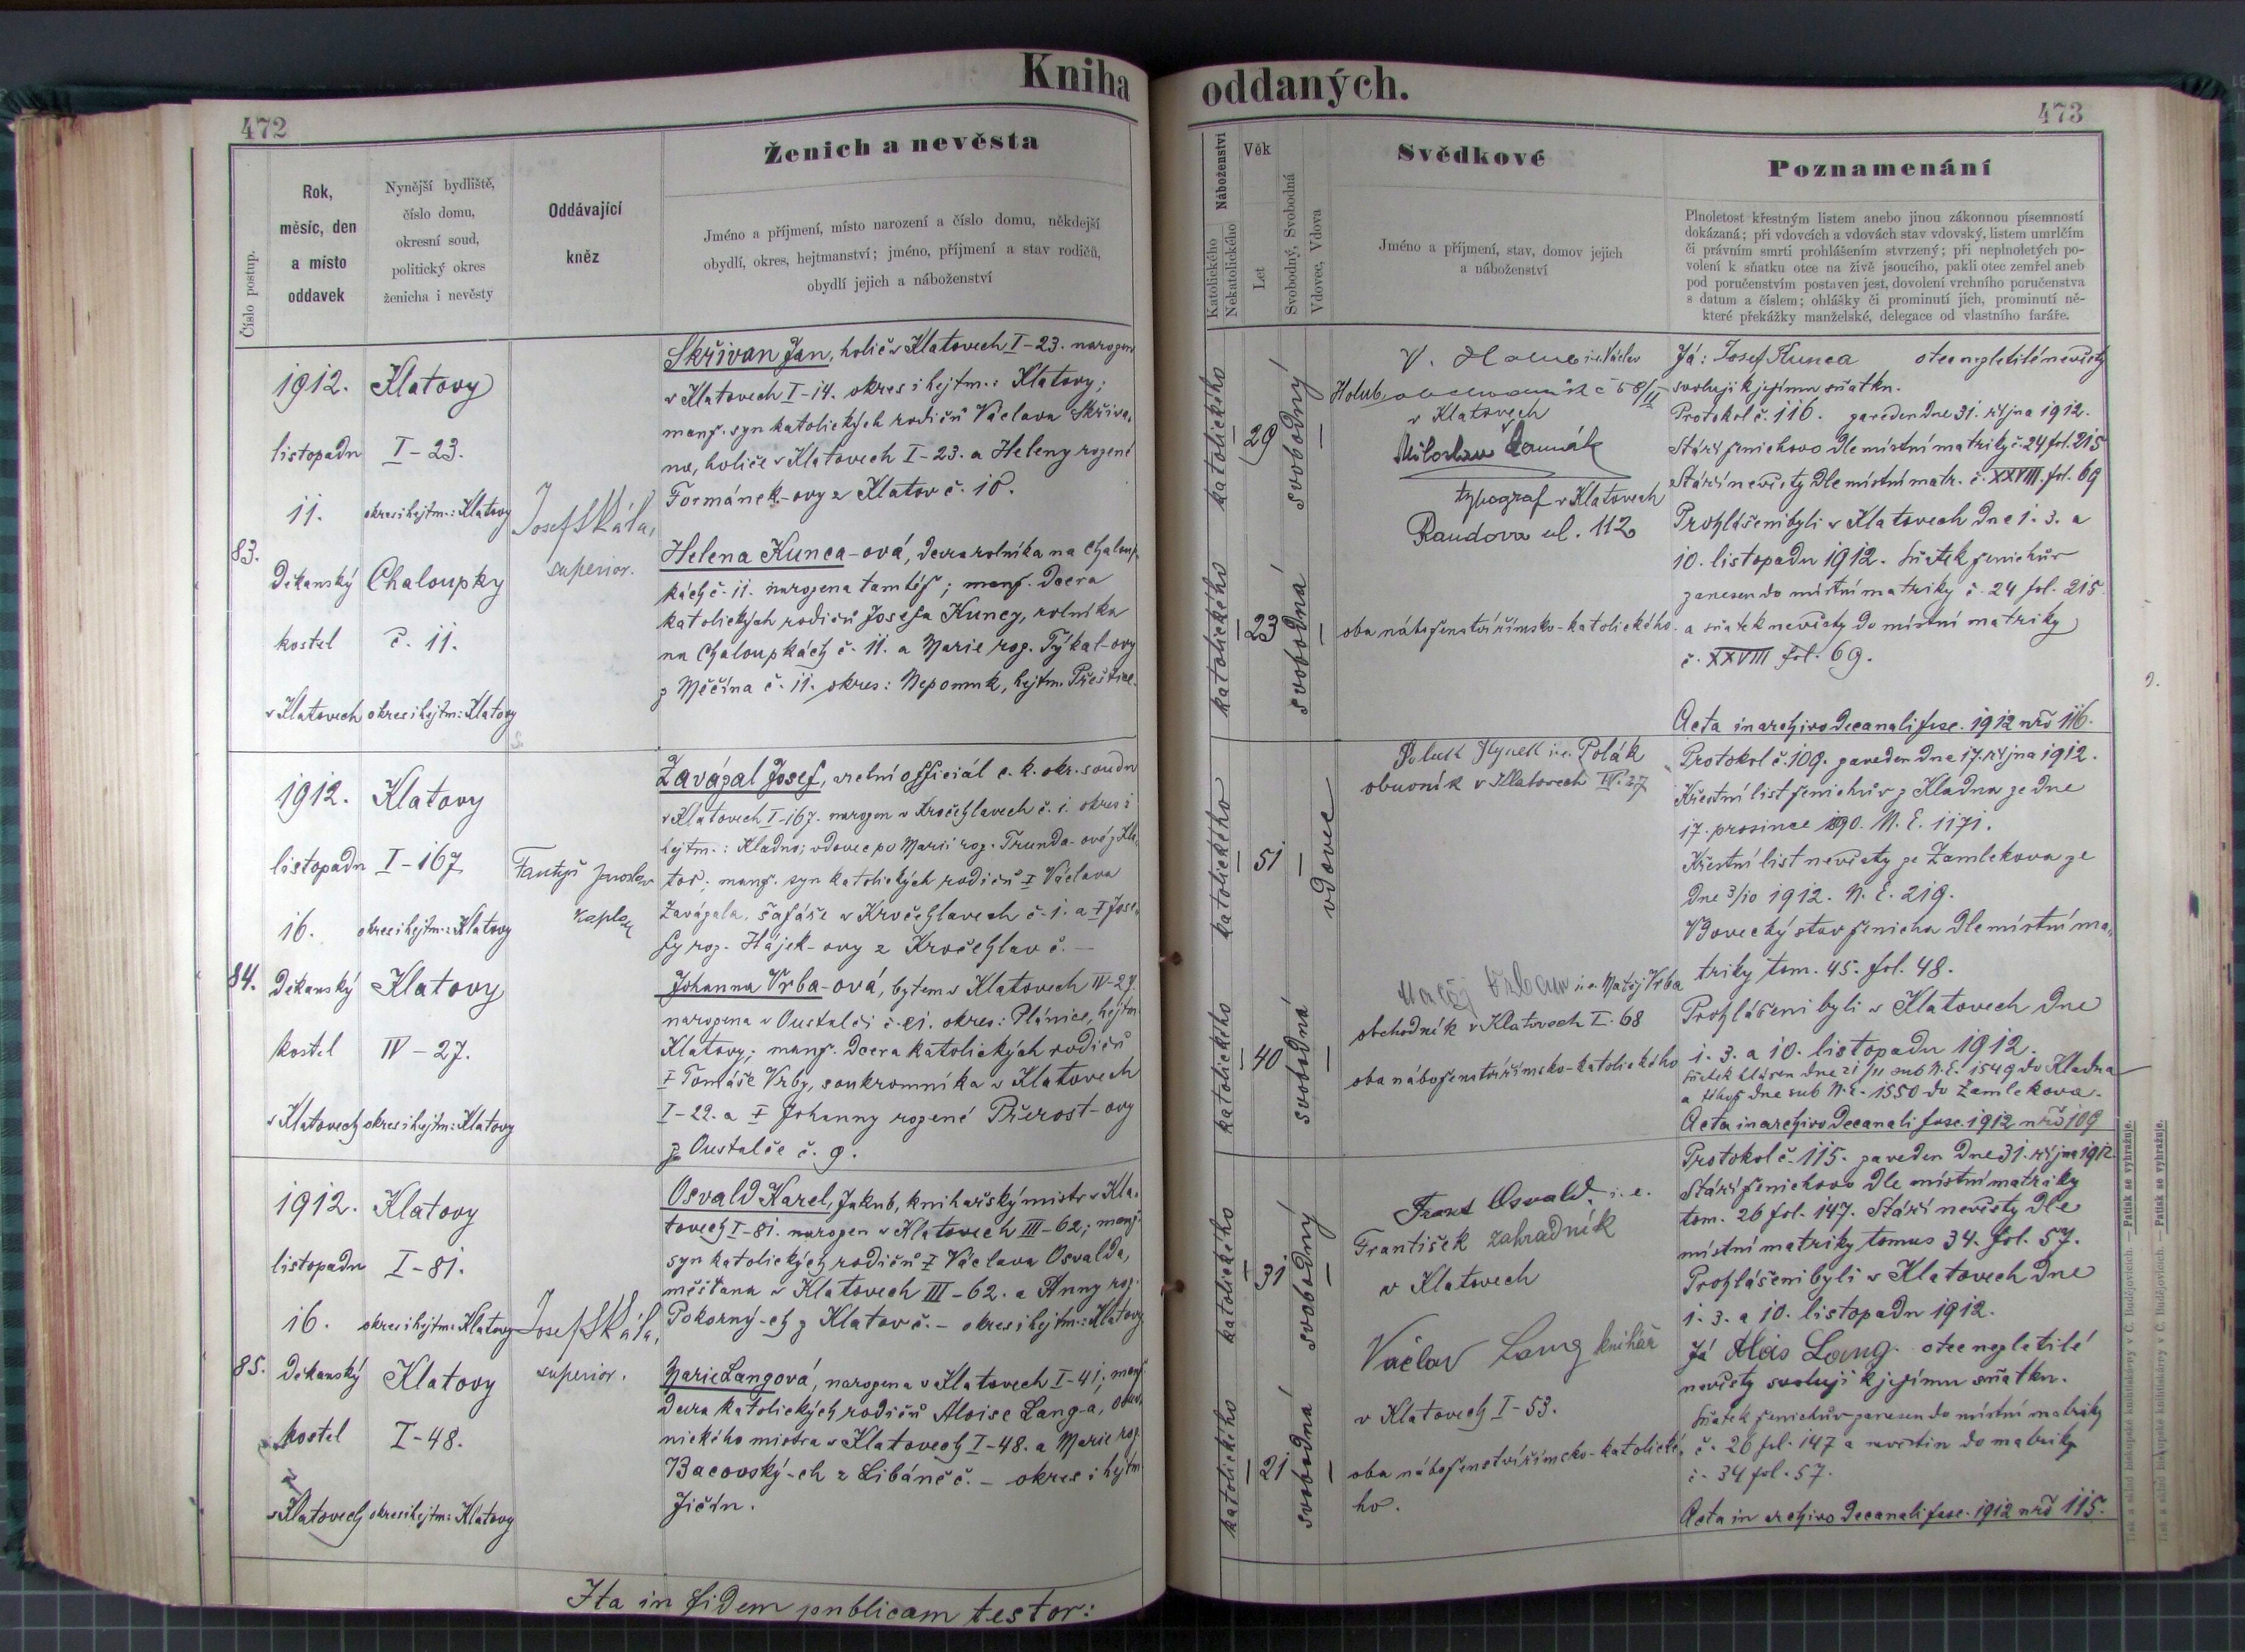 Kniha oddaných.
472
473
Číslo postup.
Rok,
měsíc, den
a místo
oddavek
Nynější bydliště,
číslo domu,
okresní soud,
politický okres
ženicha i nevěsty
Oddávající
kněz
Ženich a nevěsta
Jméno a příjmení, místo narození a číslo domu, někdejší
obydlí, okres, hejtmanství; jméno, příjmení a stav rodičů,
obydlí jejich a náboženství
Náboženství
Katolického
Nekatolického
Věk
Let
Svobodný, Svobodná
Vdovec, Vdova
Svědkové
Jméno a příjmení, stav, domov jejich
a náboženství
Poznamenání
Plnoletost křestným listem anebo jinou zákonnou písemností
dokázaná; při vdovcích a vdovách stav vdovský, listem umrlčím
či právním smrti prohlášením stvrzený; při neplnoletých po-
volení k sňatku otce na živě jsoucího, pakli otec zemřel aneb
pod poručenstvím postaven jest, dovolení vrchního poručenstva
s datum a číslem; ohlášky či prominutí jich, prominutí ně-
které překážky manželské, delegace od vlastního faráře.
83.
1912.
listopadu
11.
Děkanský
kostel
v Klatovech
Klatovy
I-23.
okres i hejtm.: Klatovy
Chaloupky
č. 11.
okres i hejtm.: Klatovy
Josef Skála,
superior.
Skřivan Jan, holič v Klatovech I-23. narozen
v Klatovech I-14. okres i hejtm.: Klatovy;
manž. syn katolických rodičů Václava Skřiva-
na, holiče v Klatovech I-23. a Heleny rozené
Formánek-ovy z Klatov č. 10.
Helena Kunca-ová, dcera rolníka na Chaloup-
kách č. 11. narozena tamtéž; manž. dcera
katolických rodičů Josefa Kuncy, rolníka
na Chaloupkách č. 11. a Marie roz. Týkal-ovy
z Měčína č. 11. okres: Nepomuk, hejtm. Přeštice.
katolického
29
svobodný
katolického
23
svobodná
V. Holub i.e. Václav
Holub, obchodník č 58/II
v Klatovech
Miloslav
typograf v Klatovech
Randova ul. 112
oba náboženství římsko-katolického.
Já: Josef Kunca otec nezletilé nevěsty
svoluji k jejímu sňatku.
Protokol č. 116. zaveden dne 31. října 1912.
Stáří ženichovo dle místní matriky č. 24 fol. 215
Stáří nevěsty dle místní matr. č. XXVIII. fol. 69
Prohlášeni byli v Klatovech dne 1. 3. a
10. listopadu 1912. Sňatek ženichův
zanesen do místní matriky č. 24 fol. 215.
a sňatek nevěsty do místní matriky
č. XXVIII fol. 69.
Acta in archivo decanali fasc. 1912 nrō 116.
84.
1912.
listopadu
16.
Děkanský
kostel
v Klatovech
Klatovy
I-167
okres i hejtm.: Klatovy
Klatovy
IV-27.
okres i hejtm.: Klatovy
Jaroslav
kaplan
Zavázal Josef, officiál c. k. okr. soudu
v Klatovech I-167. narozen v Kročehlavech č. 1. okres i
hejtm.: Kladno; vdovec po Marii roz. Trunda-ové z Kla-
tov; manž. syn katolických rodičů † Václava
Zavázala, šafáře v Kročehlavech č. 1. a † Jose-
fy roz. Hájek-ovy z Kročehlav č. —
Johanna Vrba-ová, bytem v Klatovech IV-27.
narozena v Oustalči č. 21. okres: Plánice, hejtm.
Klatovy; manž. dcera katolických rodičů
† Tomáše Vrby, soukromníka v Klatovech
I-22. a † Johanny rozené Přerost-ovy
z Oustalče č. 9.
katolického
51
vdovec
katolického
40
svobodná
Polák Hynek i.e. Polák
obuvník v Klatovech IV. 27
Matěj Vrba i.e. Matěj Vrba
obchodník v Klatovech I. 68
oba náboženství římsko-katolického
Protokol č. 109. zaveden dne 17. října 1912.
Křestní list ženichův z Kladna ze dne
17. prosince 1890. N. E. 1171.
Křestní list nevěsty ze Zamlekova ze
dne 3/10 1912. N. E. 219.
Vdovecký stav ženicha dle místní ma-
triky tom. 45. fol. 48.
Prohlášeni byli v Klatovech dne
1. 3. a 10. listopadu 1912.
Sňatek hlášen dne 21/11 sub N.E. 1549 do Kladna
a téhož dne sub N.E. 1550 do Zamlekova.
Acta in archivo decanali fasc. 1912 nrō 109
85.
1912.
listopadu
16.
Děkanský
kostel
v Klatovech
Klatovy
I-81.
okres i hejtm.: Klatovy
Klatovy
I-48.
okres i hejtm.: Klatovy
Josef Skála,
superior.
Osvald Karel, Jakub, knihařský mistr v Kla-
tovech I-81. narozen v Klatovech III-62; manž.
syn katolických rodičů † Václava Osvalda,
měšťana v Klatovech III-62. a Anny roz.
Pokorný-ch z Klatov č. - okres i hejtm.: Klatovy
Marie Langová, narozena v Klatovech I-41; manž.
dcera katolických rodičů Aloise Lang-a, obuv-
nického mistra v Klatovech I-48. a Marie roz.
Bacovský-ch z Libáně č. - okres i hejtm
Jičín.
katolického
31
svobodný
katolického
21
svobodná
Franz Osvald, i. e.
František zahradník
v Klatovech
Václav Lang knihař
v Klatovech I-53.
oba náboženství římsko-katolické-
ho.
Protokol č. 115. zaveden dne 31. října 1912
Stáří ženichovo dle místní matriky
tom. 26 fol. 147. Stáří nevěsty dle
místní matriky tomus 34. fol. 57.
Prohlášeni byli v Klatovech dne
1. 3. a 10. listopadu 1912.
Já Alois Lang. otec nezletilé
nevěsty svoluji k jejímu sňatku.
Sňatek ženichův zanesen do místní matriky
č. 26 fol. 147 a nevěstin do matriky
č. 34 fol. 57.
Acta in archivo decanali fasc. 1912 nrō 115.
Ita in fidem publicam testor:
Tisk a sklad biskupské knihtiskárny v Č. Budějovicích. — Patisk se vyhražuje.
Tisk a sklad biskupské knihtiskárny v Č. Budějovicích. — Patisk se vyhražuje.